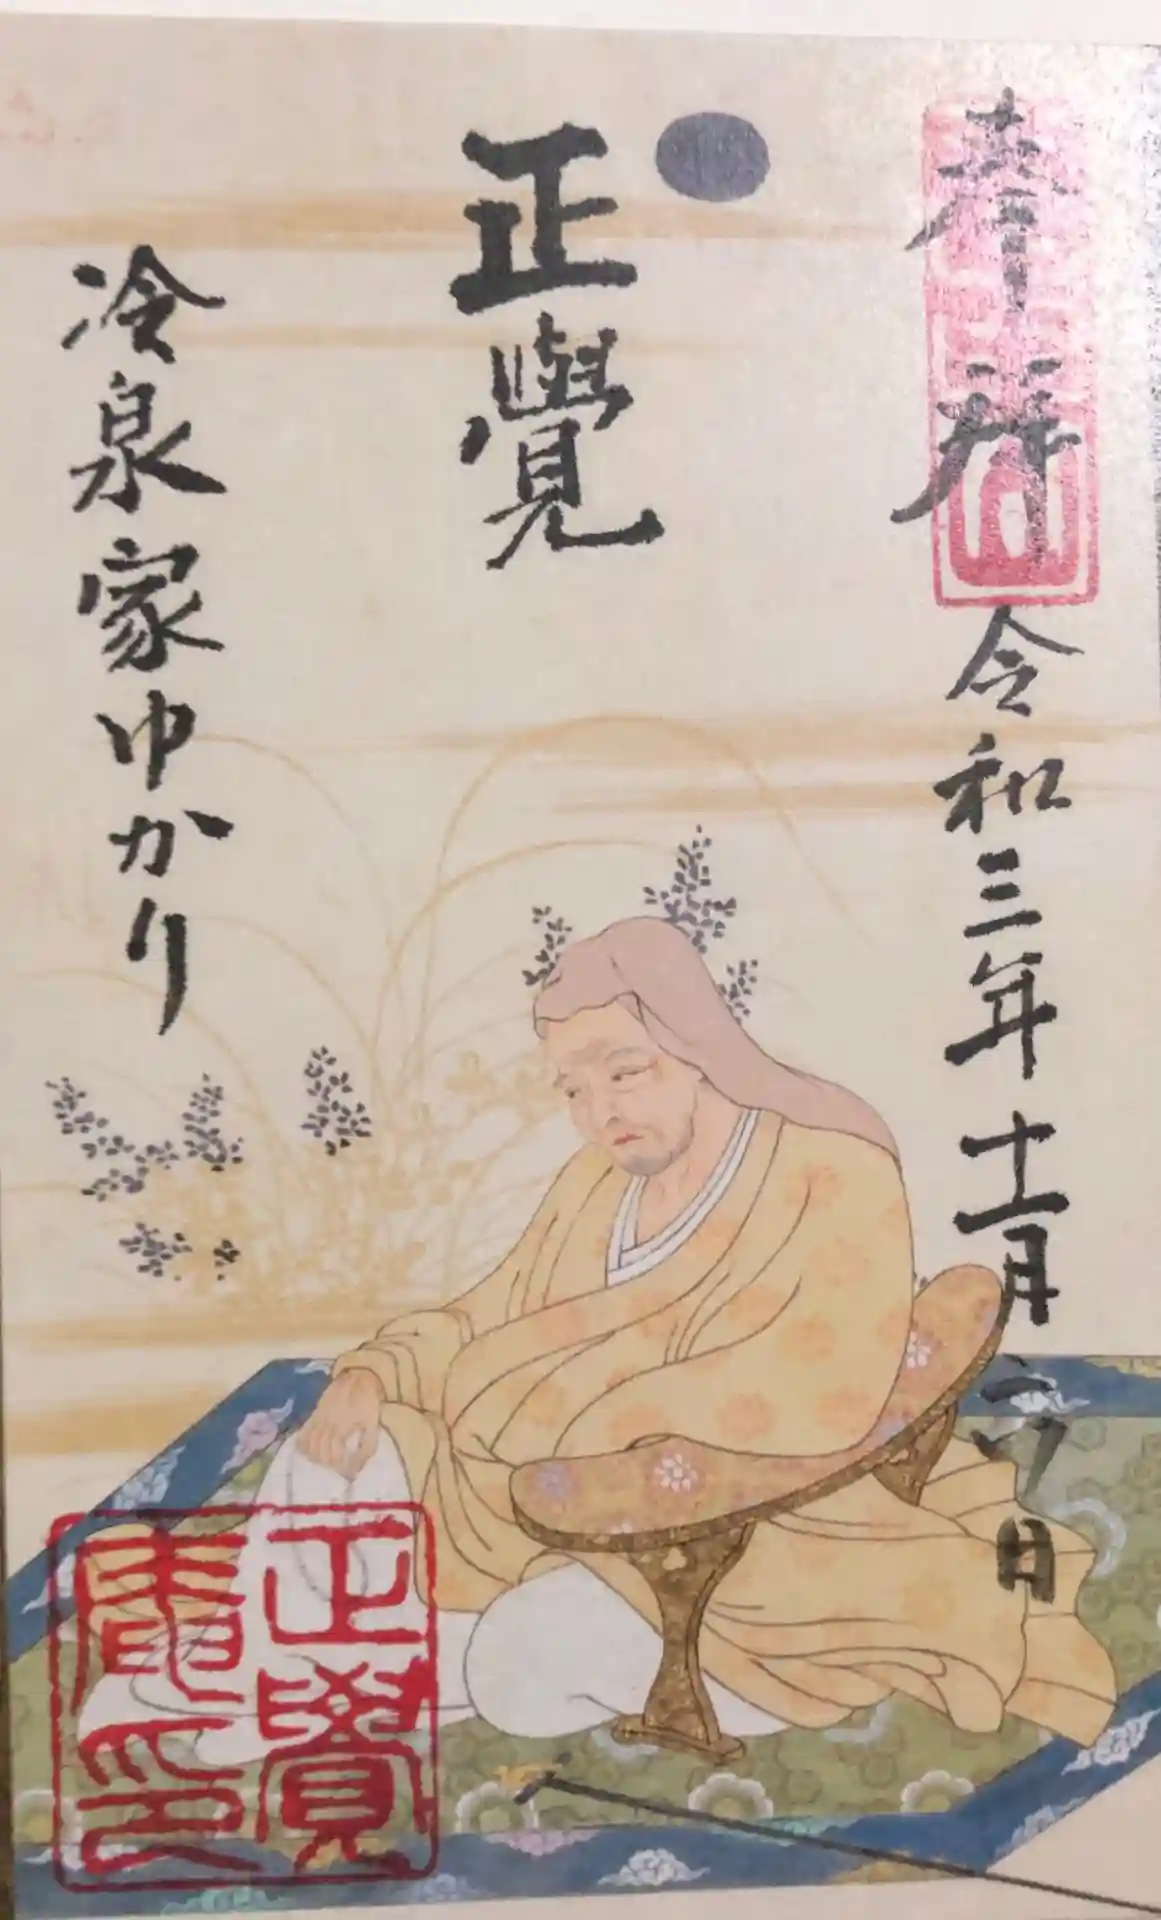 奉拝 令和三年十一月六日
正覺
冷泉家ゆかり
正覺
庵印